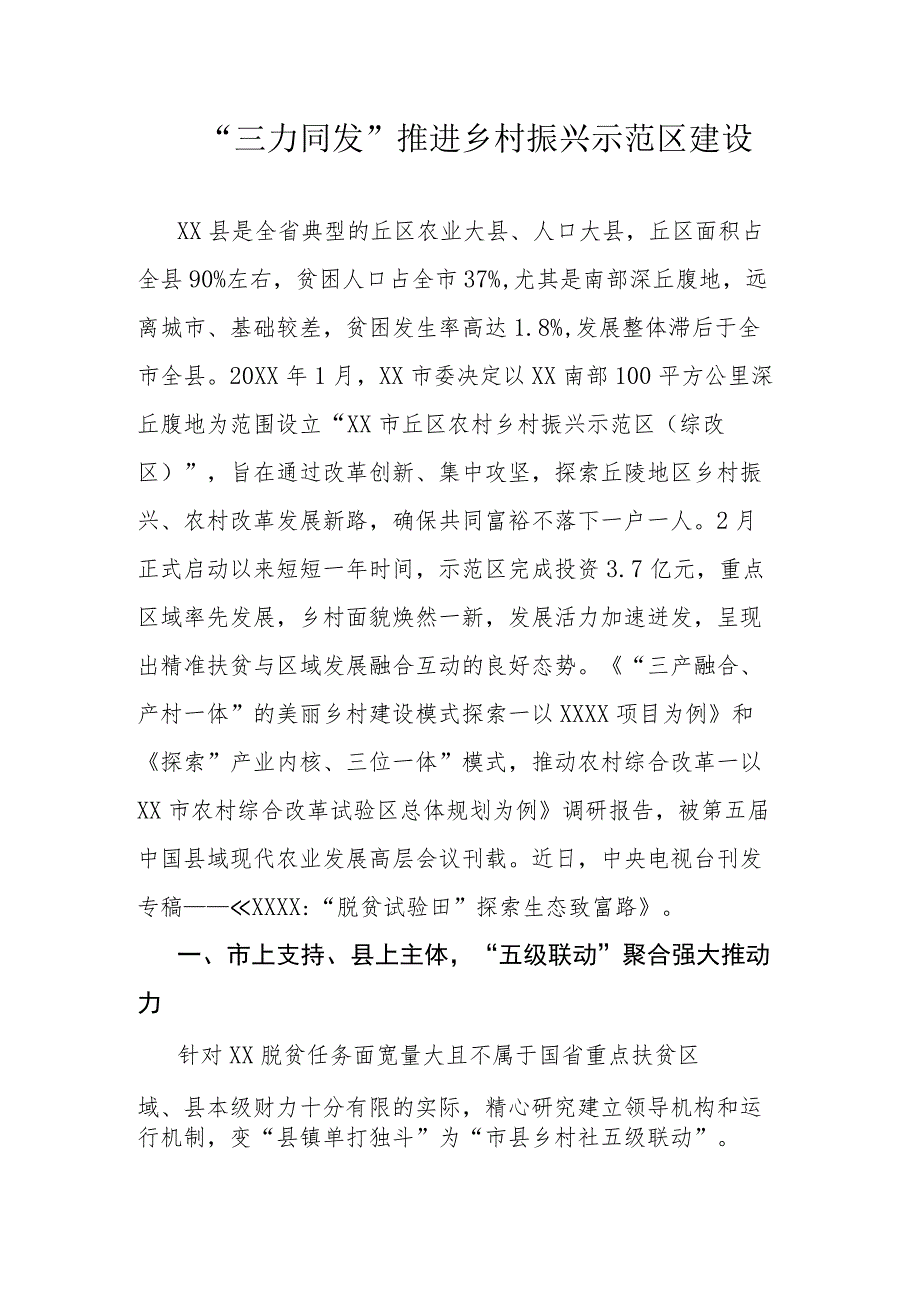 “三力同发”推进乡村振兴示范区建设
XX 县是全省典型的丘区农业大县、人口大县，丘区面积占
全县 90%左右，贫困人口占全市 37%,尤其是南部深丘腹地，远
离城市、基础较差，贫困发生率高达 1.8%,发展整体滞后于全
市全县。20XX 年 1 月，XX 市委决定以 XX 南部 100 平方公里深
丘腹地为范围设立“XX 市丘区农村乡村振兴示范区（综改
区）”，旨在通过改革创新、集中攻坚，探索丘陵地区乡村振
兴、农村改革发展新路，确保共同富裕不落下一户一人。2 月
正式启动以来短短一年时间，示范区完成投资 3.7 亿元，重点
区域率先发展，乡村面貌焕然一新，发展活力加速迸发，呈现
出精准扶贫与区域发展融合互动的良好态势。《“三产融合、
产村一体”的美丽乡村建设模式探索一以 XXXX 项目为例》和
《探索”产业内核、三位一体”模式，推动农村综合改革一以
XX 市农村综合改革试验区总体规划为例》调研报告，被第五届
中国县域现代农业发展高层会议刊载。近日，中央电视台刊发
专稿——≪XXXX:“脱贫试验田”探索生态致富路》。
一、市上支持、县上主体，“五级联动”聚合强大推动
力
针对 XX 脱贫任务面宽量大且不属于国省重点扶贫区
域、县本级财力十分有限的实际，精心研究建立领导机构和运
行机制，变“县镇单打独斗”为“市县乡村社五级联动”。